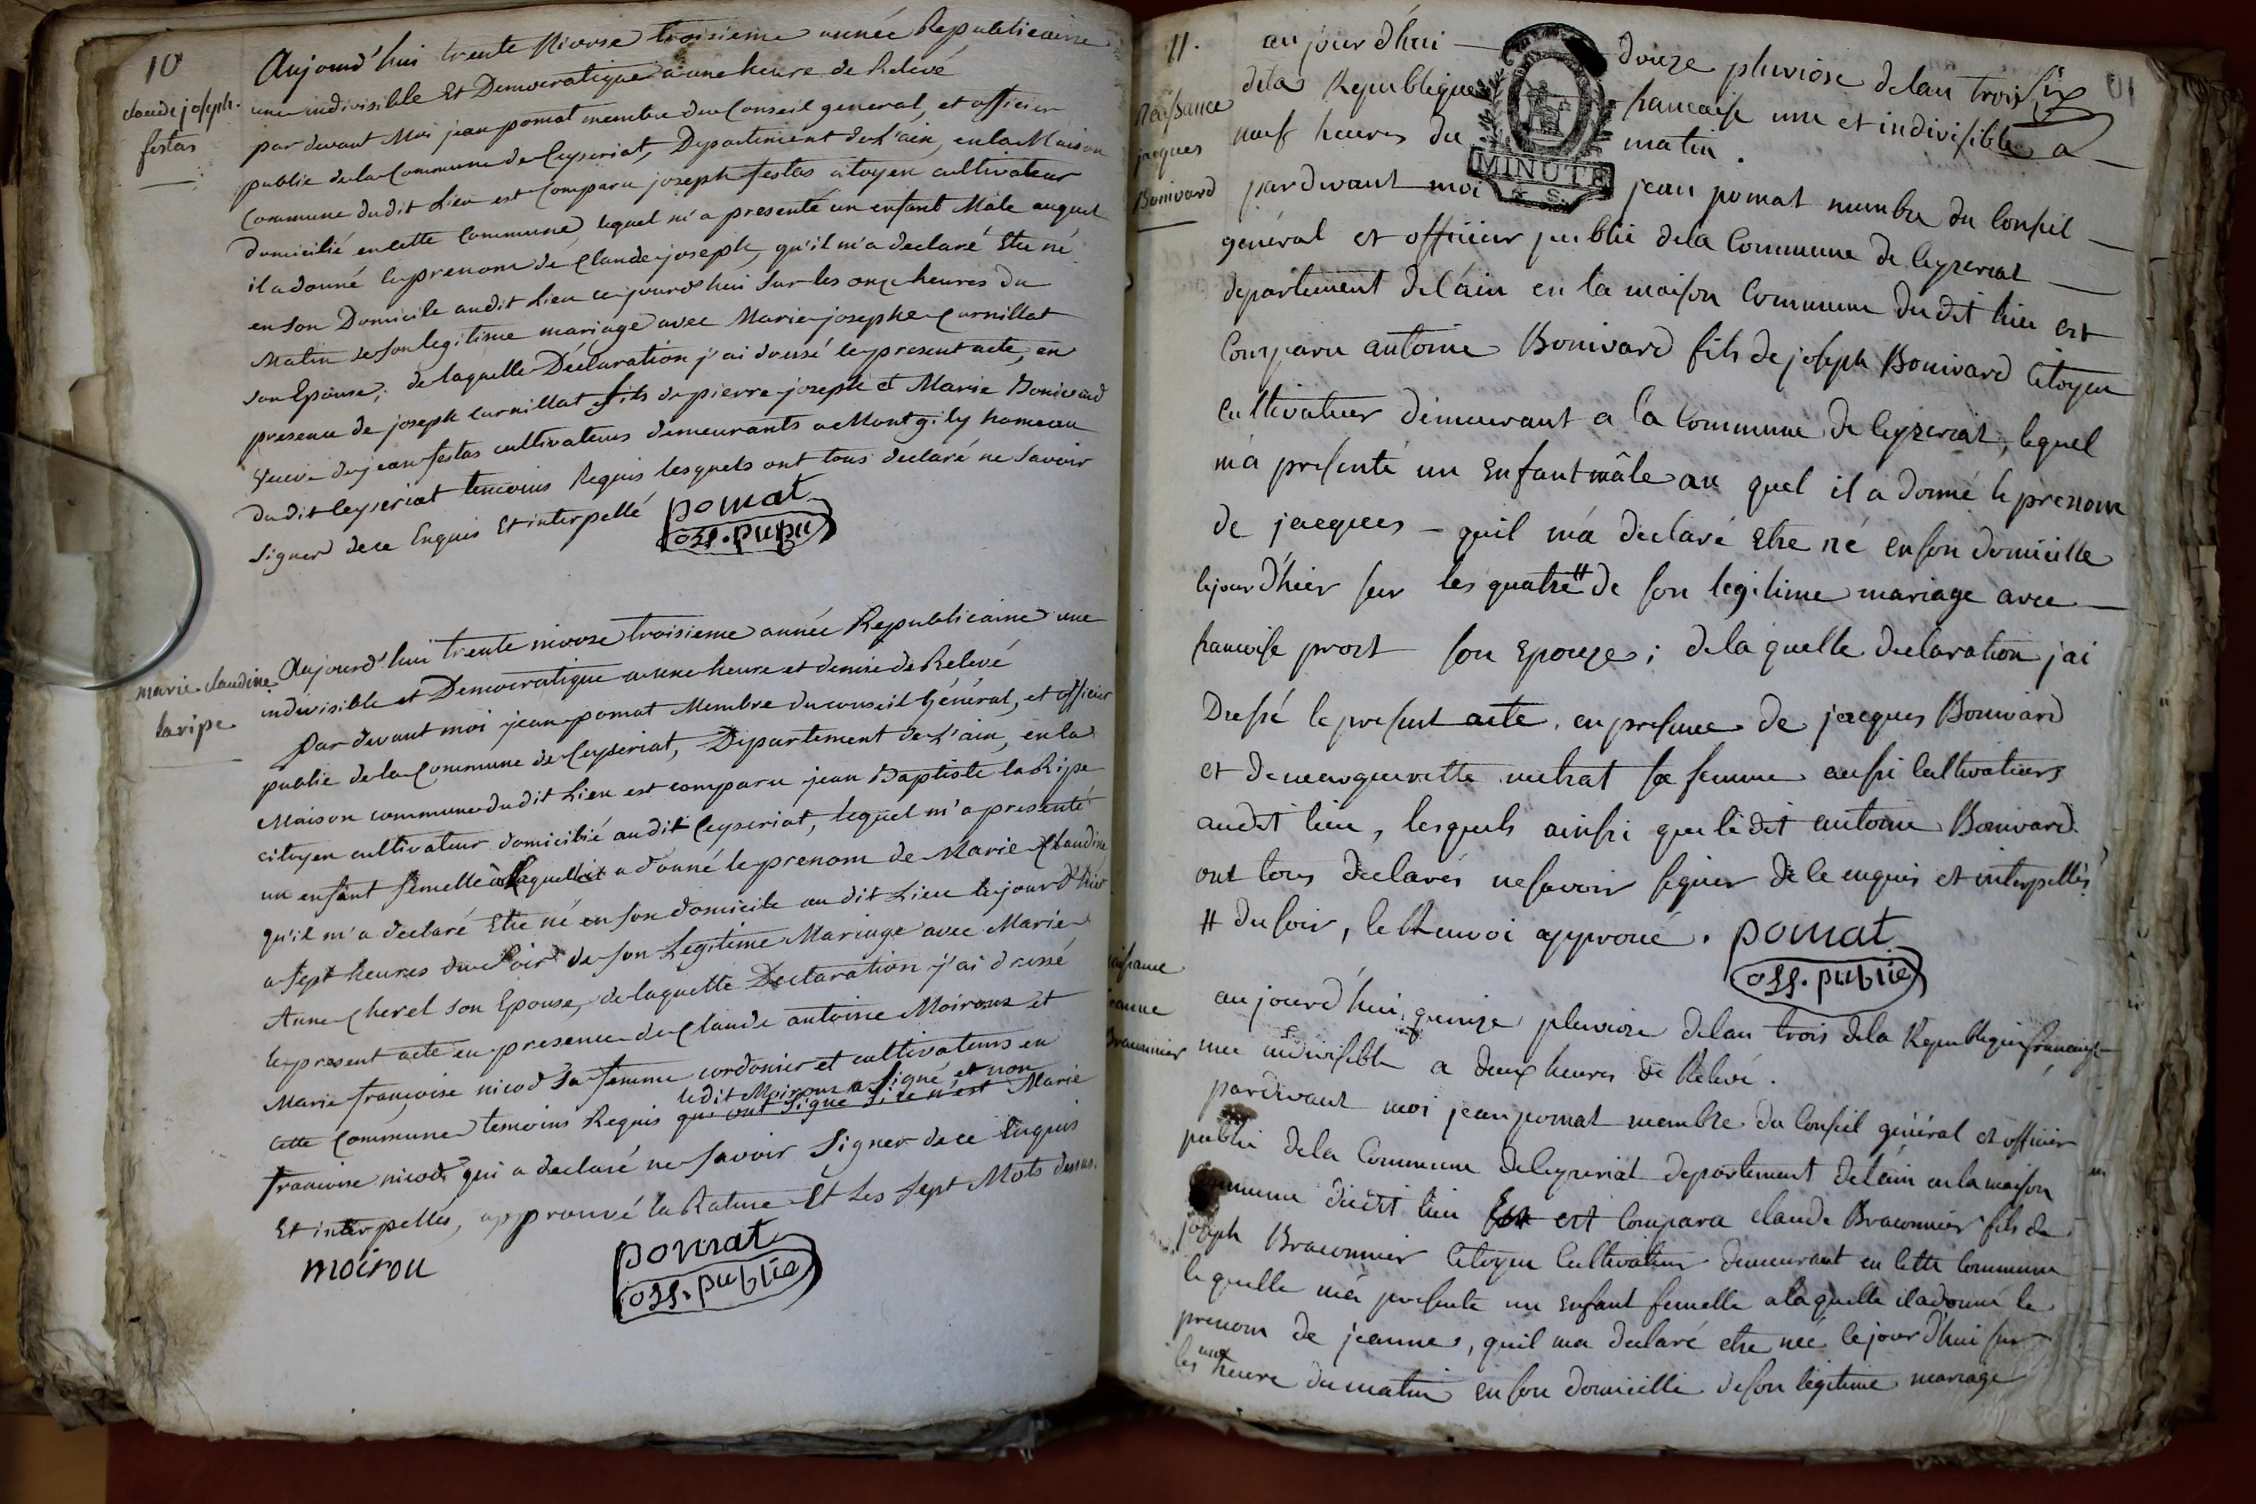 10
claude joseph.
festas
Aujourd'hui trente Nivose troisieme année Republicaine
une indivisible Et Democratique a une heure de Relevé
par devant Moi jean pomat membre du Conseil general, et officier
public de la Commune de Ceyseriat, Departement de L'ain, en la Maison
Commune dudit Lieu est Comparu joseph festas citoyen cultivateur
domicilié en cette Commune, lequel m'a presenté un enfant Mâle auquel
il a donné le prenom de Claude joseph, qu'il m'a declaré Etre né
en son Domicile audit Lieu ce jourd'hui Sur les onze heures du
Matin de son legitime mariage avec Marie josephe Curnillat
son Epouse; de laquelle Déclaration j'ai dressé le present acte, en
presence de joseph Curnillat fils de pierre joseph et Marie Bonivard
veuve de jean festas cultivateurs demeurants a Montgily hameau
dudit Ceyseriat temoins Requis lesquels ont tous declaré ne Savoir
Signer de ce Enquis Et interpellé
pomat
off. public
marie claudine
laripe
Aujourd'hui trente nivose troisieme année Republicaine une
indivisible et Democratique a une heure et demie de Relevé
Par devant moi jean pomat Membre du conseil Général, et officier
public de la Commune de Ceyseriat, Departement de L'ain, en la
Maison commune dudit Lieu est comparu jean Baptiste la Ripe
citoyen cultivateur domicilié audit Ceyseriat, lequel m'a presenté
un enfant femelle a laquelle il a donné le prenom de Marie Claudine
qu'il m'a declaré Etre né en son domicile audit Lieu le jour d'hier
a Sept heures du Soir de son Legitime Mariage avec Marie
Anne Cherel son Epouse, de laquelle Declaration j'ai dressé
le present acte en presence de Claude antoine Moiroux et
Marie françoise nicod Sa femme cordonier et cultivateurs en
cette Commune temoins Requis qui ont Signé Si ce n'est Marie
ledit Moiroux a Signé et non
francoise nicod qui a declaré ne Savoir Signer de ce Enquis
Et interpellés, approuvé la Rature Et Les Sept Mots dessus.
moirou
pomat
off. public
11.
Naissance
jacques
Bonivard
aujourdhui douze pluviose de lan trois
dela Republique francaise une et indivisible a
neuf heures du matin.
MINUTE
pardevant moi jean pomat membre du Conseil
général et officier public dela Commune de Ceyzeriat
departement de l'ain en la maison Commune dudit lieu est
Comparu antoine Bonivard fils de joseph Bonivard Citoyen
Cultivateur demeurant a la Commune de Ceyzeriat, lequel
m'a présenté un Enfant mâle au quel il a donné le prenom
de jacques quil m'a declaré Etre né en son domicille
le jour d'hier sur les quatre # de son legitime mariage avec
francoise prost son Epouze; de la quelle declaration jai
Dressé le present acte. en presence de jacques Bonivard
et de marguerette sa femme aussi Cultivateurs
audit lieu, lesquels ainsi que ledit antoine Bonivard
ont tous declarés ne savoir signer de ce enquis et interpellés
# du soir, le Renvoi approuvé. pomat
off. public
naissance
jeanne
Braconnier
aujourd'hui quinze pluviose delan trois dela Republique francaise
une indivisible a deux heures de Relevé.
pardevant moi jean pomat membre du Conseil général et officier
public dela Commune de Ceyzeriat departement de lain en la maison
Commune dudit lieu est Compara claude Braconnier fils de
joseph Braconnier Citoyen Cultivateur demeurant en Cette Commune
le quelle m'a presente un Enfant femelle a la quelle il a donné le
prenom de jeanne, quil ma declaré etre née le jour d'hui sur
les une heure du matin en son domicille de son legitime mariage